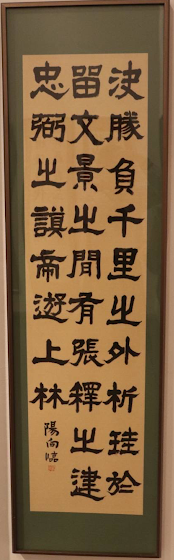 決勝負千里之外析珪於
留文景之間有張釋之建
忠弼之謨帝遊上林
陽向